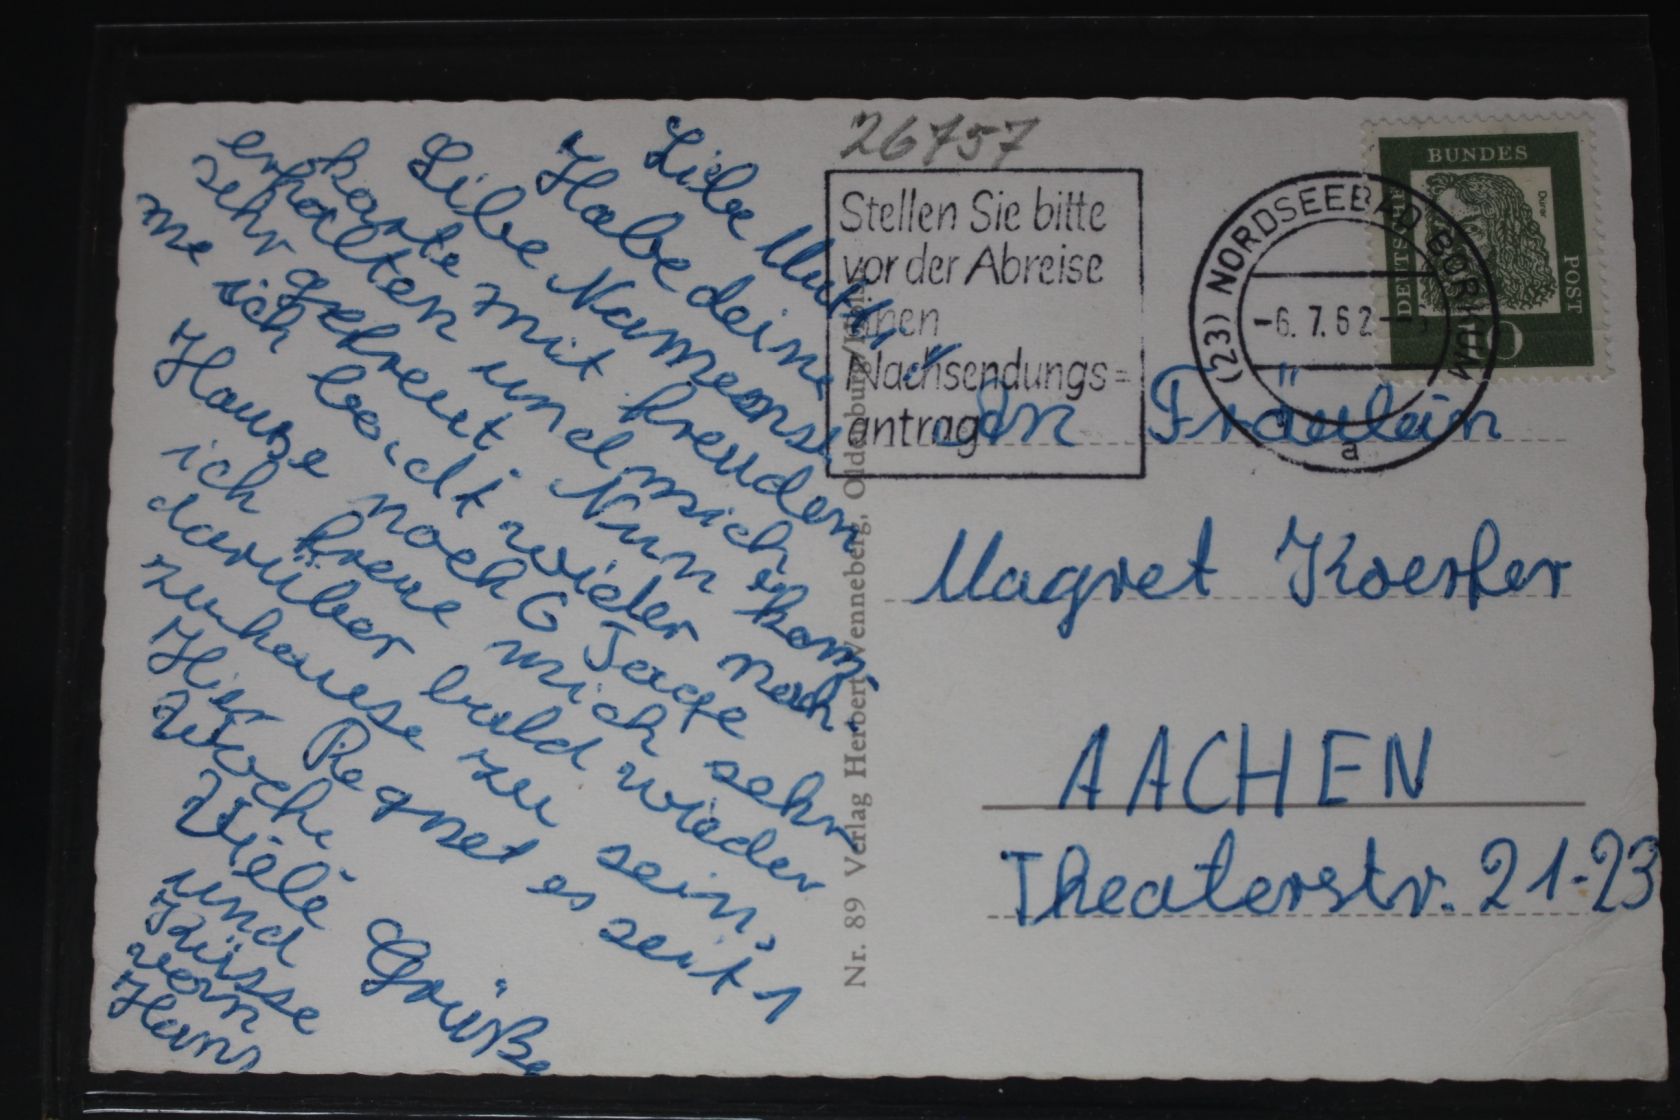 Liebe Mutti,
Habe deine
Liebe Namens
karte mit freuden
erhalten und mich
sehr gefreut. Nun kom-
me ich bald wieder nach
Hause noch 6 Tage
ich freue mich sehr
darüber bald wieder
zuhause zu sein,
Hier Regnet es seit 1
Woche
Viele Grüße
und
Küsse
von
Hans
26757
Stellen Sie bitte
vor der Abreise
einen
Nachsendungs=
antrag
(23) NORDSEEBAD BORKUM
-6. 7. 62
a
BUNDES
POST
DEUTSCHE
Dürer
10
Nr. 89 Verlag Herbert Venneberg, Oldenburg/Holst.
An Fräulein
Magret Koerfer
AACHEN
Theaterstr. 21-23